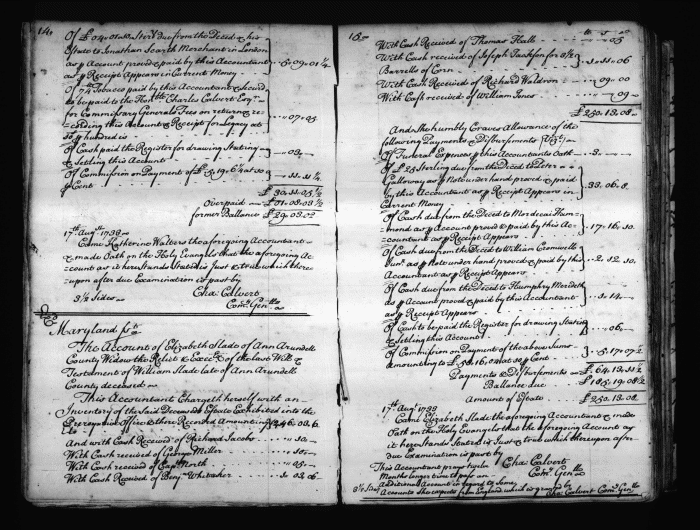 14.
Of £ 04.01.10 Sterl due from the Deced & his
Estate to Jonathan Scarth Merchant in London
as ℔ Account proved & paid by this Accountant
as ℔ Receipt Appears in Current Money . . . 5.09.01¼
Of Tobacco paid by this Accountant &
as be paid to the Honble Charles Calvert Esqr
for Commissary Generals Fees on return & re=
=cording this Account & Receipt for Legacy at
10/ ℔ hundred is . . . 07.05
Of Cash paid the Register for drawing Stating
& Settling this Account . . . 03.
Of Commission on Payment of at 10
℔ Cent . . . 11.11¼
£ 30.11.05½
Overpaid £ 01.08.03½
former Ballance £ 29.03.02
17th Augst 1738
Came Katherine Walters the aforegoing Accountant
& made Oath on the Holy Evangels that the aforegoing Ac=
=count as it here stands Stated is Just & true which there=
=upon after due Examination is past by
3½ Sides
Cha: Calvert
Com. Genll
Maryland ss
The Account of Elizabeth Slade of Ann Arundell
County Widow the Relict & Execx of the last Will &
Testament of William Slade late of Ann Arundell
County deceased
This Accountant Chargeth herself with an
Inventory of the Said Deceaseds Estate Exhibited into the
Prerogative Office & there Recorded Amounting
to £246.08.6
And with Cash Received of Richard Jacobs . . . 10
With Cash received of George Miller . . . 10
With Cash received of Capt North . . . 05
With Cash Received of Benj Whitaker . . . 03.06
15.
With Cash Received of Thomas Hall . . . 05
With Cash received of Joseph Jackson for 3½
Barrells of Corn . . . 1.11.06
With Cash Received of Richard Waldron . . . 09.00
With Cash received of William Jones . . . 09
£250.13.08
And She humbly Craves Allowance of the
following Payments & Disbursements Vizt
Of Funeral Expences ℔ this Accountants Oath . . . 3
Of £25 Sterling due from the Deced to Peter
Galloway as ℔ Note under hand proved & paid
by this Accountant as ℔ Receipt Appears in
Current Money . . . 33.06.8
Of Cash due from the Deced to Mordecai Ham=
=mond as ℔ Account proved & paid by this Ac=
=countant as ℔ Receipt Appears . . . 17.16.10
Of Cash due from the Deced to William Cromwell
Junr as ℔ Note under hand proved & paid by this
Accountant as ℔ Receipt Appears . . . 2.12.10
Of Cash due from the Deced to Humphry Meredith
as ℔ Account proved & paid by this Accountant
as ℔ Receipt Appears . . . 1.14
Of Cash to be paid the Register for drawing Stating
& Settling this Account . . . 06
Of Commission on Payment of the above Sums
Amounting to £ at 10 ℔ Cent . . . 5.17.07½
Payments & Disbursments £ 64.13.11½
Ballance due £ 185.19.08½
Amount of Estate £ 250.13.08
17th Augst 1738
Came Elizabeth Slade the aforegoing Accountant & made
Oath on the Holy Evangels that the aforegoing Account as
it here stands Stated is Just & true which thereupon after
due Examination is past by
Cha: Calvert
Com. Genll
This Accountant prays twelve
Months longer time to pass an
Additional Account in regard to Some
Accounts She expects from England which is granted by
3½ Sides
Cha: Calvert Com. Genll